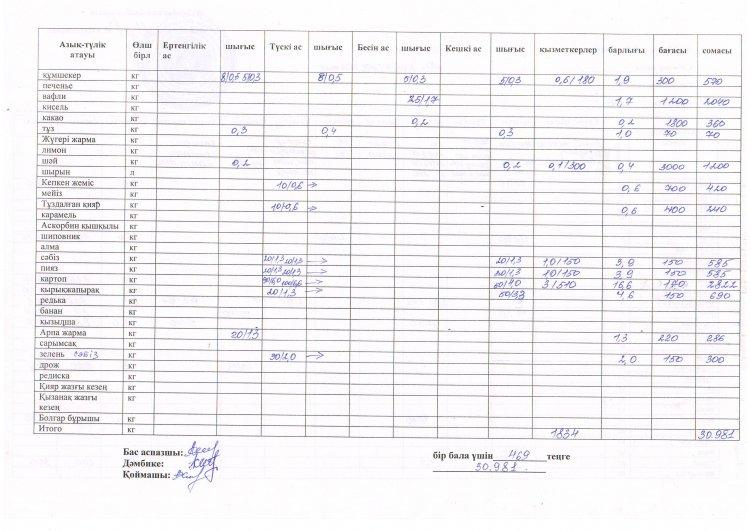 Азық-түлік атауы Өлш бірл Ертенгілік ас шығыс Түскі ас шығыс Бесін ас шығыс Кешкі ас шығыс кызметкерлер барлығы бағасы сомасы
құмшекер кг 8/0,5 5/0,3 8/0,5 5/0,3 5/0,3 0,6/180 1,9 300 570
печенье кг
вафли кг 25/1,7 1,7 1200 2040
кисель кг
какао кг 0,2 0,2 1800 360
тұз кг 0,3 0,4 0,3 1,0 70 70
Жүгері жарма кг
лимон кг
шәй кг 0,2 0,2 0,1/300 0,4 3000 1200
шырын л
Кепкен жеміс кг 10/0,6 → 0,6 700 420
мейіз кг
Тұздалған қияр кг 10/0,6 → 0,6 400 240
карамель кг
Аскорбин қышқылы кг
шиповник кг
алма кг
сәбіз кг 20/1,3 20/1,3 → 20/1,3 1,0/150 3,9 150 585
пияз кг 20/1,3 20/1,3 → 20/1,3 1,0/150 3,9 150 585
картоп кг → 60/4,0 3/510 16,6 170 2822
кырыкжапырақ кг 20/1,3 → 50/3,3 4,6 150 690
редька кг
банан кг
қызылша кг
Арпа жарма кг 20/1,3 1,3 220 286
сарымсақ кг
зелень сәбіз кг 30/2,0 → 2,0 150 300
дрож кг
редиска кг
Қияр жазғы кезең кг
Қызанақ жазғы кезең кг
Болгар бұрышы кг
Итого кг 1834 30.981
Бас аспазшы:
Дәмбике:
Қоймашы:
бір бала үшін 469 теңге
30.981